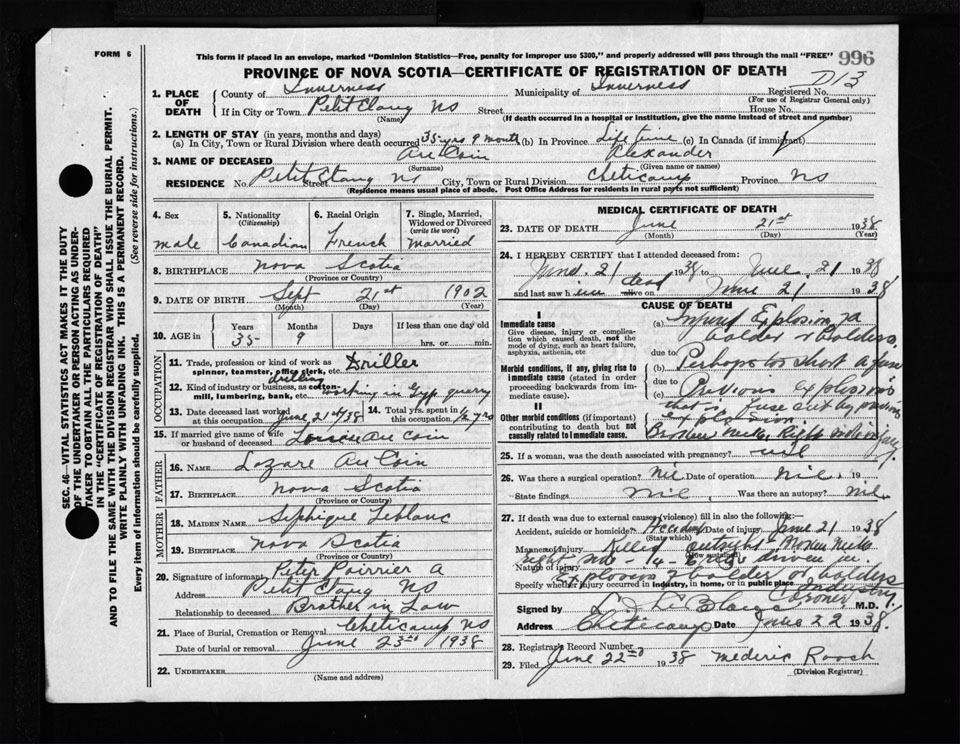 FORM 6
This form if placed in an envelope, marked "Dominion Statistics—Free, penalty for improper use $300," and properly addressed will pass through the mail "FREE"
996
PROVINCE OF NOVA SCOTIA—CERTIFICATE OF REGISTRATION OF DEATH
D13
1. PLACE OF DEATH
County of Inverness Municipality of Inverness Registered No.
(For use of Registrar General only)
If in City or Town Petit Etang NS Street House No.
(Name) (If death occurred in a hospital or institution, give the name instead of street and number)
2. LENGTH OF STAY (in years, months and days)
(a) In City, Town or Rural Division where death occurred 35 yrs 9 month (b) In Province Life time (c) In Canada (if immigrant)
3. NAME OF DECEASED Au Coin Alexander
(Surname) (Given name or names)
RESIDENCE No. Petit Etang NS Street City, Town or Rural Division Cheticamp Province NS
(Residence means usual place of abode. Post Office Address for residents in rural parts not sufficient)
4. Sex
male
5. Nationality
(Citizenship)
Canadian
6. Racial Origin
French
7. Single, Married, Widowed or Divorced
(write the word)
married
8. BIRTHPLACE Nova Scotia
(Province or Country)
9. DATE OF BIRTH Sept 21st 1902
(Month) (Day) (Year)
10. AGE in
Years Months Days If less than one day old
35 9 hrs. or min.
OCCUPATION
11. Trade, profession or kind of work as
spinner, teamster, office clerk, etc. Driller
drilling
12. Kind of industry or business, as cotton-
mill, lumbering, bank, etc. working in Gyp quarry
13. Date deceased last worked
at this occupation June 21st/38
14. Total yrs. spent in
this occupation
15. If married give name of wife
or husband of deceased Au Coin
FATHER
16. NAME Lazare Au Coin
17. BIRTHPLACE Nova Scotia
(Province or Country)
MOTHER
18. MAIDEN NAME Leblanc
19. BIRTHPLACE Nova Scotia
(Province or Country)
20. Signature of informant Peter Poirrier A
Address Petit Etang NS
Relationship to deceased Brother in Law
21. Place of Burial, Cremation or Removal Cheticamp NS
Date of burial or removal June 23rd 1938
22. UNDERTAKER
(Name and address)
MEDICAL CERTIFICATE OF DEATH
23. DATE OF DEATH June 21st 1938
(Month) (Day) (Year)
24. I HEREBY CERTIFY that I attended deceased from:
June 21 1938 to June 21 1938
and last saw h im dead alive on June 21 1938
CAUSE OF DEATH
I
Immediate cause
Give disease, injury or complication which caused death, not the mode of dying, such as heart failure, asphyxia, asthenia, etc
(a) Explosion
due to
Morbid conditions, if any, giving rise to immediate cause (stated in order proceeding backwards from immediate cause).
(b) shot
due to
(c)
II
Other morbid conditions (important) contributing to death but not causally related to immediate cause.
25. If a woman, was the death associated with pregnancy?
26. Was there a surgical operation? Nil Date of operation Nil 19
State findings Nil Was there an autopsy? Nil
27. If death was due to external causes (violence) fill in also the following:—
Accident, suicide or homicide? Accident Date of injury June 21 1938
(State which)
Manner of injury Killed outright
(How sustained)
Nature of injury
Specify whether injury occurred in industry, in home, or in public place Industry
Signed by Coroner M.D.
Address Cheticamp Date June 22 1938
28. Registrar's Record Number
29. Filed June 22nd 1938 Mederic Roach
(Division Registrar)
SEC. 46—VITAL STATISTICS ACT MAKES IT THE DUTY
OF THE UNDERTAKER OR PERSON ACTING AS UNDER-
TAKER TO OBTAIN ALL THE PARTICULARS REQUIRED
IN THE "CERTIFICATE OF REGISTRATION OF DEATH"
AND TO FILE THE SAME WITH THE DIVISION REGISTRAR WHO SHALL ISSUE THE BURIAL PERMIT.
WRITE PLAINLY WITH UNFADING INK. THIS IS A PERMANENT RECORD.
Every item of information should be carefully supplied. (See reverse side for instructions.)